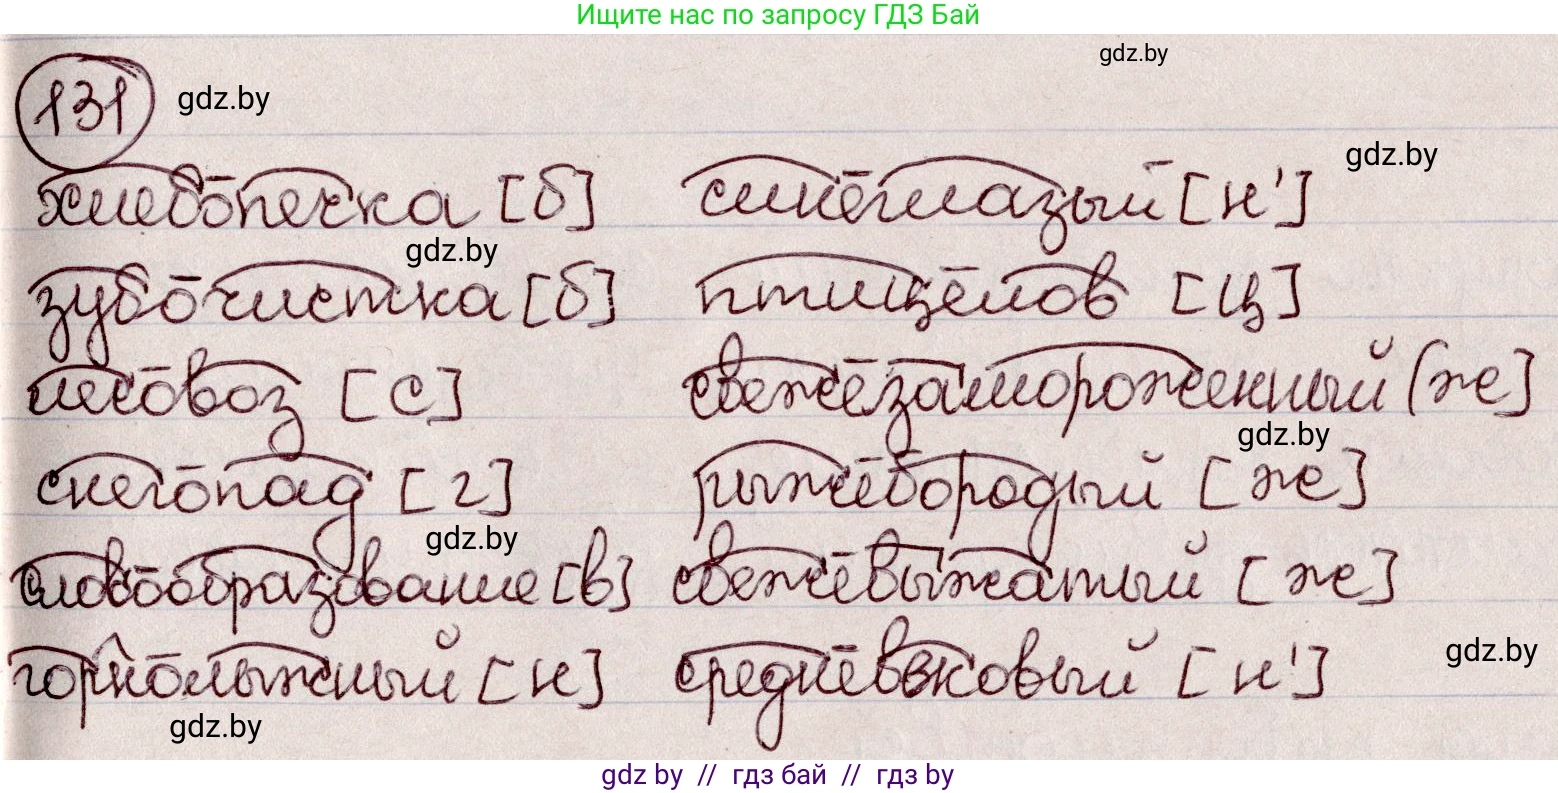 Ищите нас по запросу ГДЗ Бай
gdz.by
131 gdz.by
gdz.by
хлебопечка [б] синеглазый [н']
gdz.by
зубочистка [б] птицелов [ц]
лесовоз [с] свежезамороженный [ж]
gdz.by
снегопад [г] рыжебородый [ж]
gdz.by
словообразование [в] свежевыжатый [ж]
горнолыжный [н] средневековый [н']
gdz.by
gdz.by
gdz by // гдз бай // гдз by